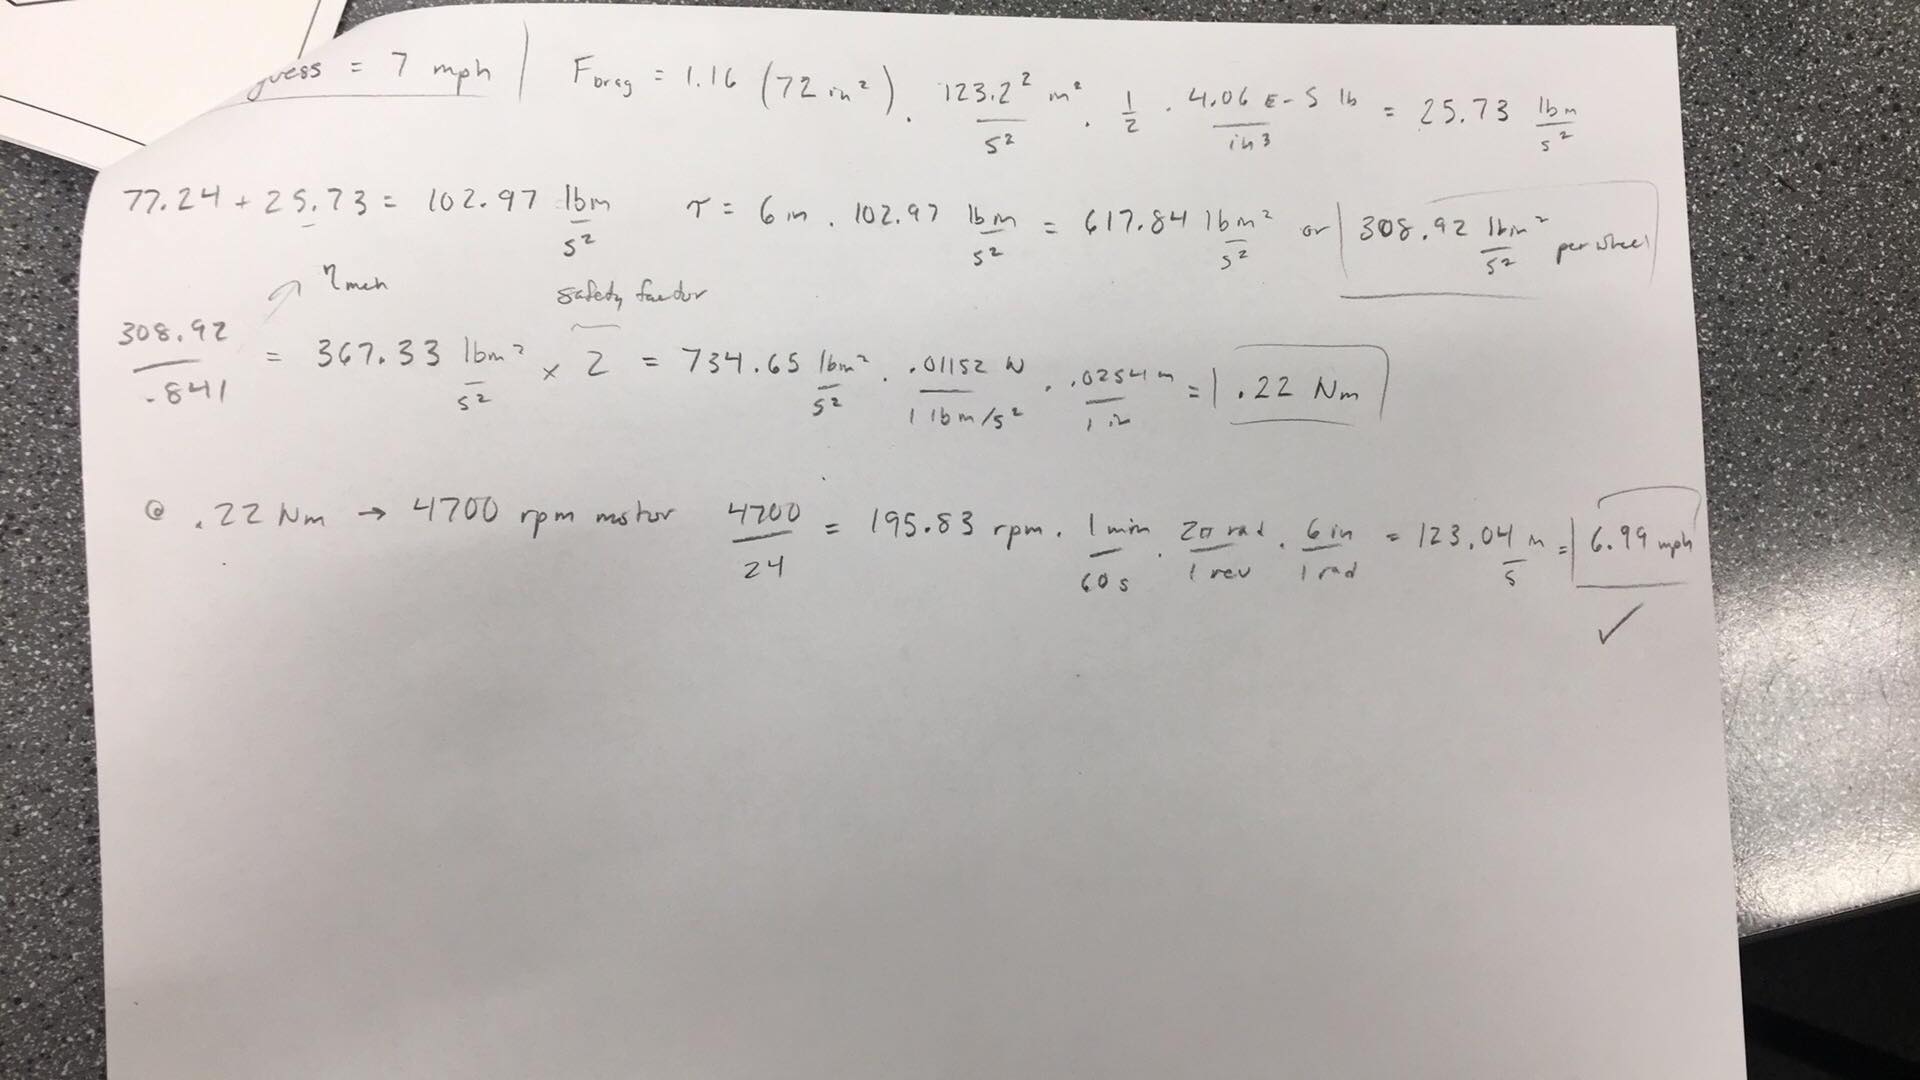 guess = 7 mph | F_drag = 1.16 (72 in²) · 123.2² in²/s² · 1/2 · 4.06 E-5 lb/in³ = 25.73 lbin/s²
77.24 + 25.73 = 102.97 lbin/s² τ = 6 in · 102.97 lbin/s² = 617.84 lbin²/s² or 308.92 lbin²/s² per wheel
η mech safety factor
308.92/.841 = 367.33 lbin²/s² × 2 = 734.65 lbin²/s² · .01152 N/1 lbin/s² · .0254 m/1 in = .22 Nm
@ .22 Nm → 4700 rpm motor 4700/24 = 195.83 rpm · 1 min/60 s · 2π rad/1 rev · 6 in/1 rad = 123.04 in/s = 6.99 mph
✓